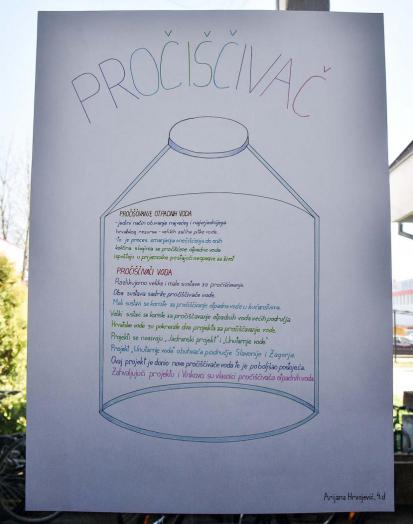 PROČIŠĆIVAČ
PROČIŠĆIVANJE OTPADNIH VODA
- jedini način očuvanja najvećeg i najvrjednijega
hrvatskog resursa - velikih zaliha pitke vode.
To je proces smanjenja onečišćenja do onih
količina kojima se pročišćene otpadne vode
ispuštaju u prijemnike postajući neopasne za život
PROČIŠĆIVAČI VODA
Razlikujemo velike i male sustave za pročišćavanje.
Oba sustava sadrže pročišćivače vode.
Mali sustavi se koriste za pročišćavanje otpadne vode u kućanstvima.
Veliki sustavi se koriste za pročišćavanje otpadnih voda većih područja.
Hrvatske vode su pokrenule dva projekta za pročišćavanje vode.
Projekti se nazivaju „Jadranski projekt" i „Unutarnje vode".
Projekt „Unutarnje vode" obuhvaća područje Slavonije i Zagorja.
Ovaj projekt je donio nove pročišćivače voda te je poboljšao postojeća.
Zahvaljujući projektu i Vinkovci su vlasnici pročišćivača otpadnih voda.
Arijana Hrvojević, 4.d